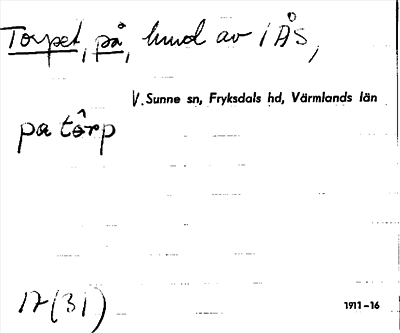 Torpet, på, hmd av 1 ÅS,
V. Sunne sn, Fryksdals hd, Värmlands län
pa tôrp
17(31)
1911–16